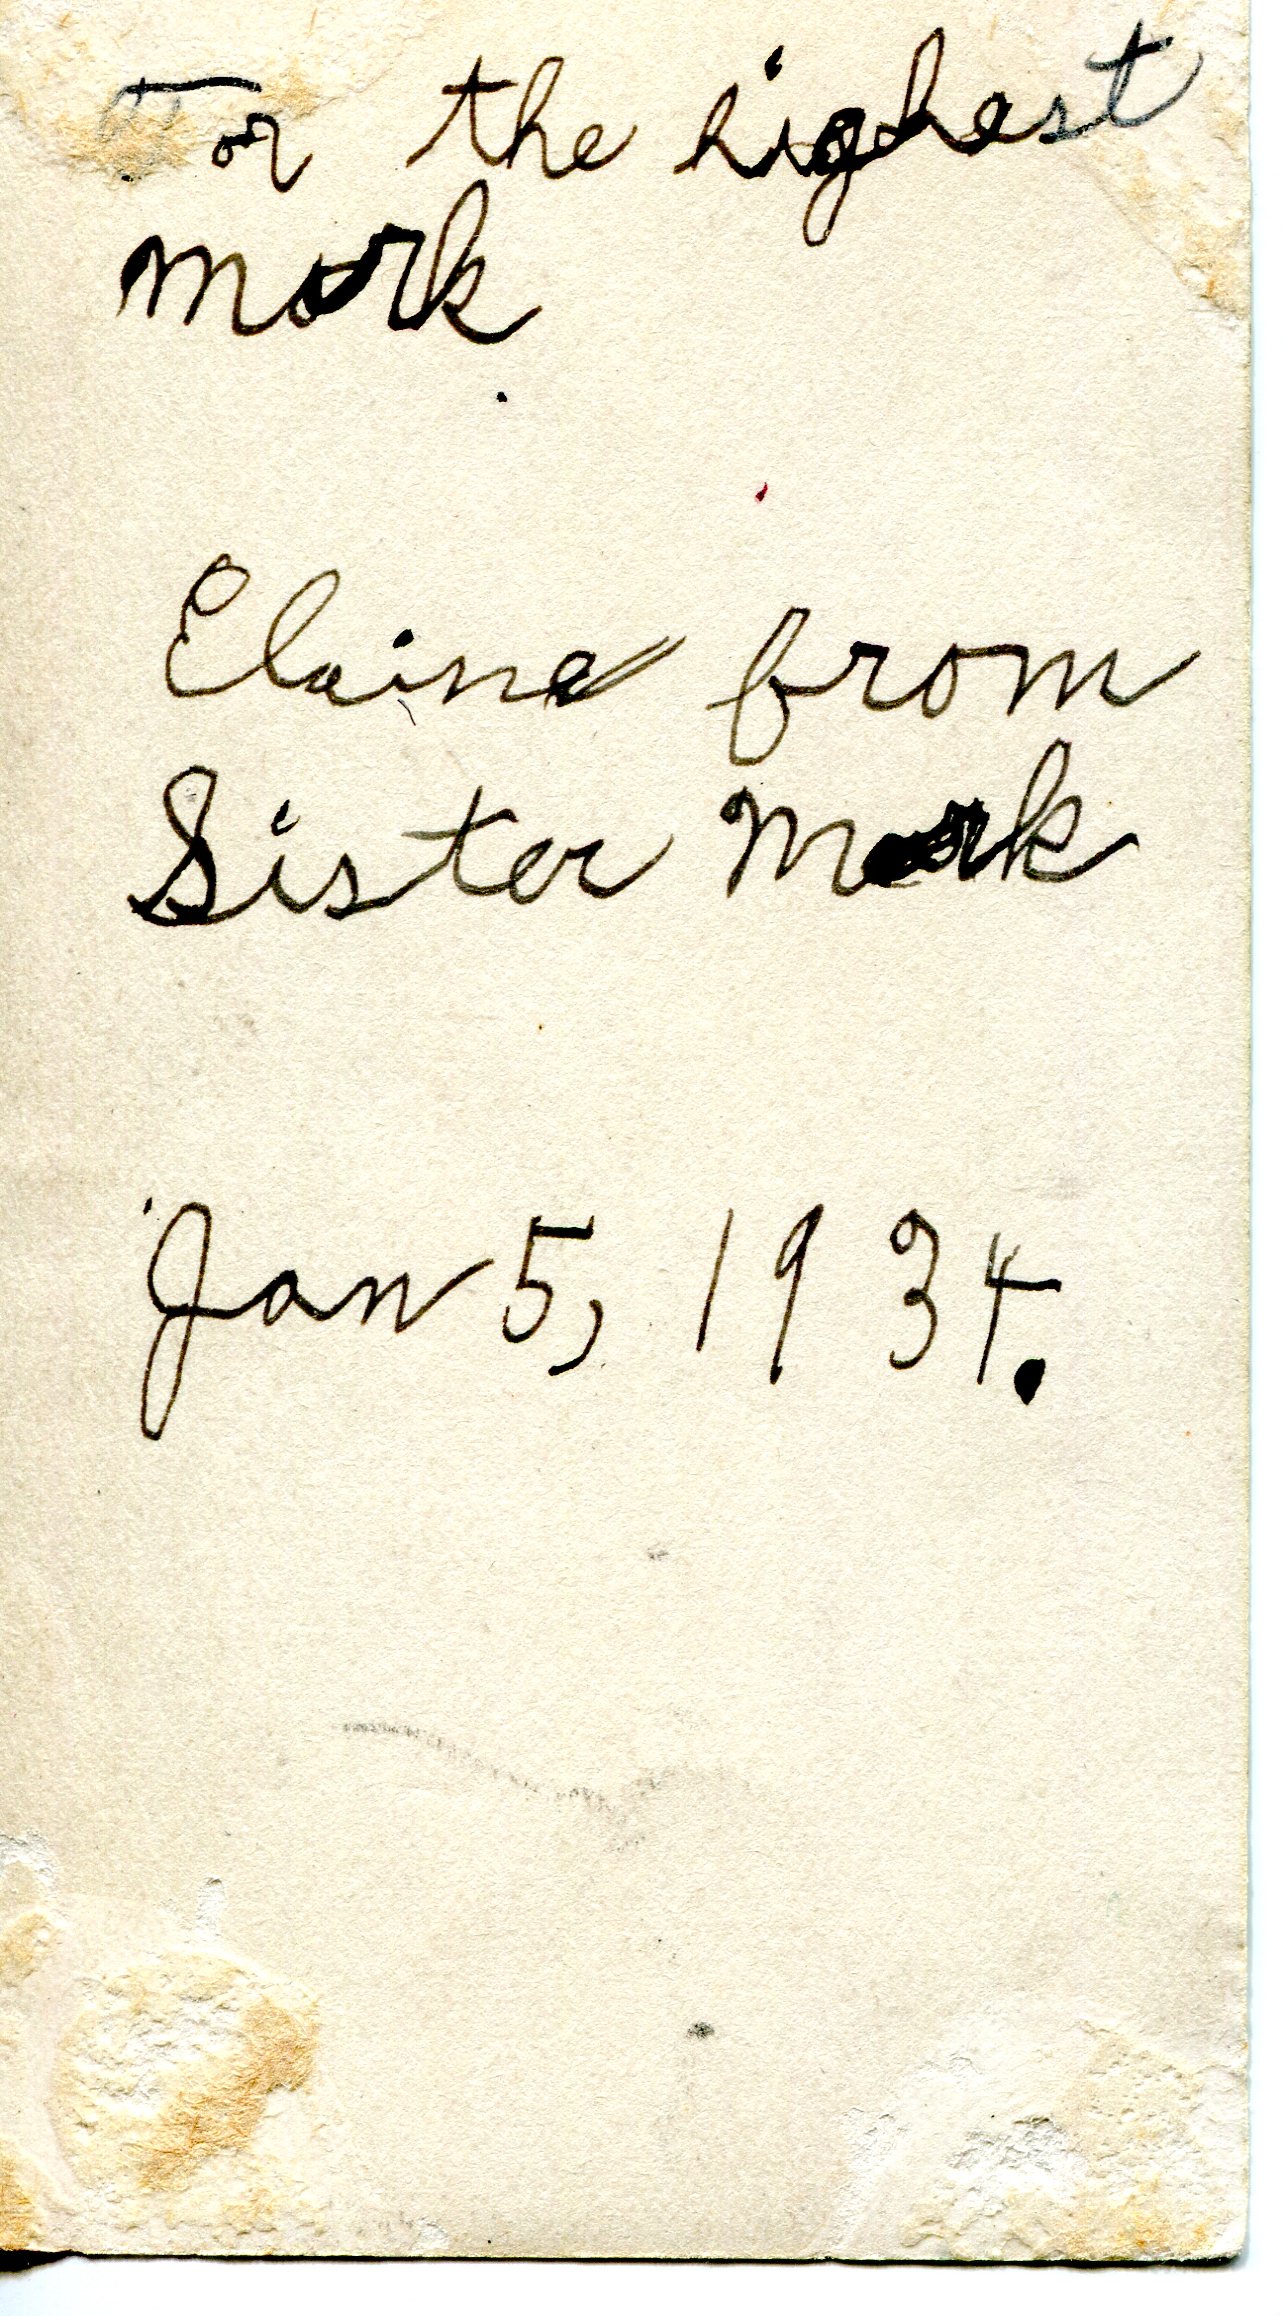 For the highest
mark
Elaine from
Sister Mark
Jan 5, 1934.